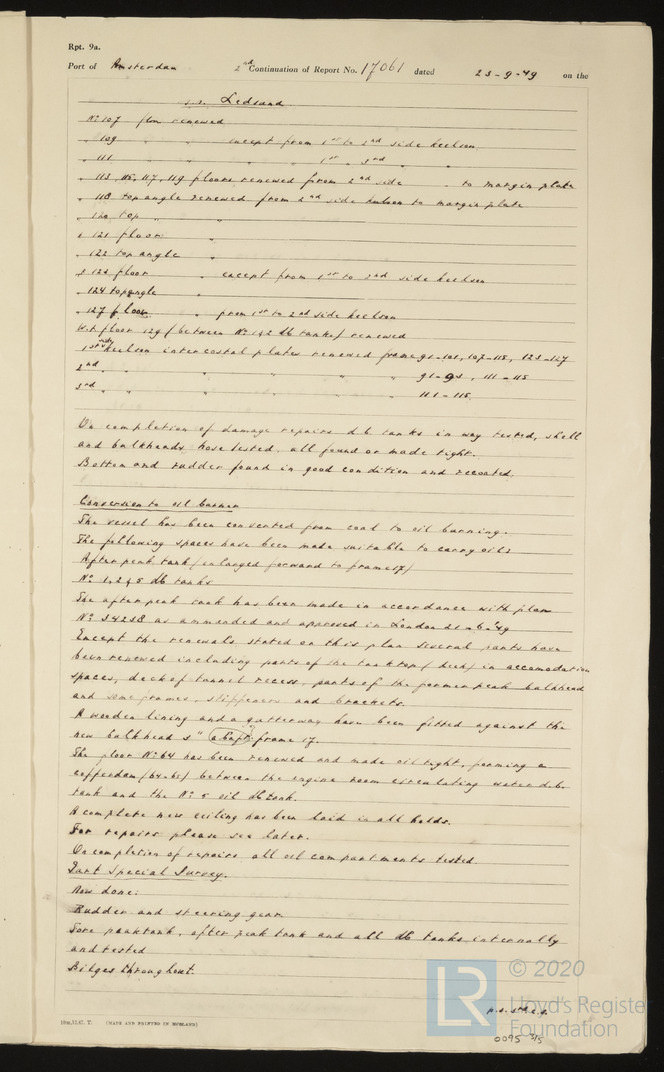 Rpt. 9a.
Port of Amsterdam 2nd Continuation of Report No. 17061 dated 23-9-49 on the
s.s. Ledsund
No 107 floor renewed
" 109 " " except from 1st to 2nd side keelson
" 111 " " " " 1st " 3rd " "
" 113, 115, 117, 119 floors renewed from 2nd side " to margin plate
" 118 top angle renewed from 2nd side keelson to margin plate
" 120 top " "
" 121 floor "
" 122 top angle "
" 123 floor " except from 1st to 2nd side keelson
" 124 top angle "
" 127 floor " from 1st to 2nd side keelson
W.t floor 129 (between No 1 & 2 db tanks) renewed
1st side keelson intercostal plates renewed frame 91-101, 107-115, 123-127
2nd " " " " " 91-93, 111-115
3rd " " " " " 111-115.
On completion of damage repairs d.b tanks in way tested, shell
and bulkheads hose tested, all found or made tight.
Bottom and rudder found in good condition and recoated.
Conversion to oil burner
The vessel has been converted from coal to oil burning.
The following spaces have been made suitable to carry oil:
After peak tank (enlarged forward to frame 17)
No 1, 2 & 5 db tanks
The after peak tank has been made in accordance with plan
No 34238 as ammended and approved in London 21-6-49
Except the renewals stated on this plan several parts have
been renewed including parts of the tanktop (deck) in accomodation
spaces, deck of tunnel recess, parts of the former peak bulkhead
and some frames, stiffeners and brackets.
A wooden lining and a gutterway have been fitted against the
new bulkhead 5" abaft frame 17.
The floor No 64 has been renewed and made oiltight, forming a
cofferdam (64-65) between the engine room circulating water d.b.
tank and the No 5 oil db tank.
A complete new ceiling has been laid in all holds.
For repairs please see later.
On completion of repairs all oil compartments tested.
Part Special Survey.
Now done:
Rudder and steering gear
Fore peaktank, after peak tank and all db tanks internally
and tested
Bilges throughout.
10m,12.47. T. (MADE AND PRINTED IN ENGLAND)
LR © 2020
Lloyd's Register
Foundation
0095 3/5